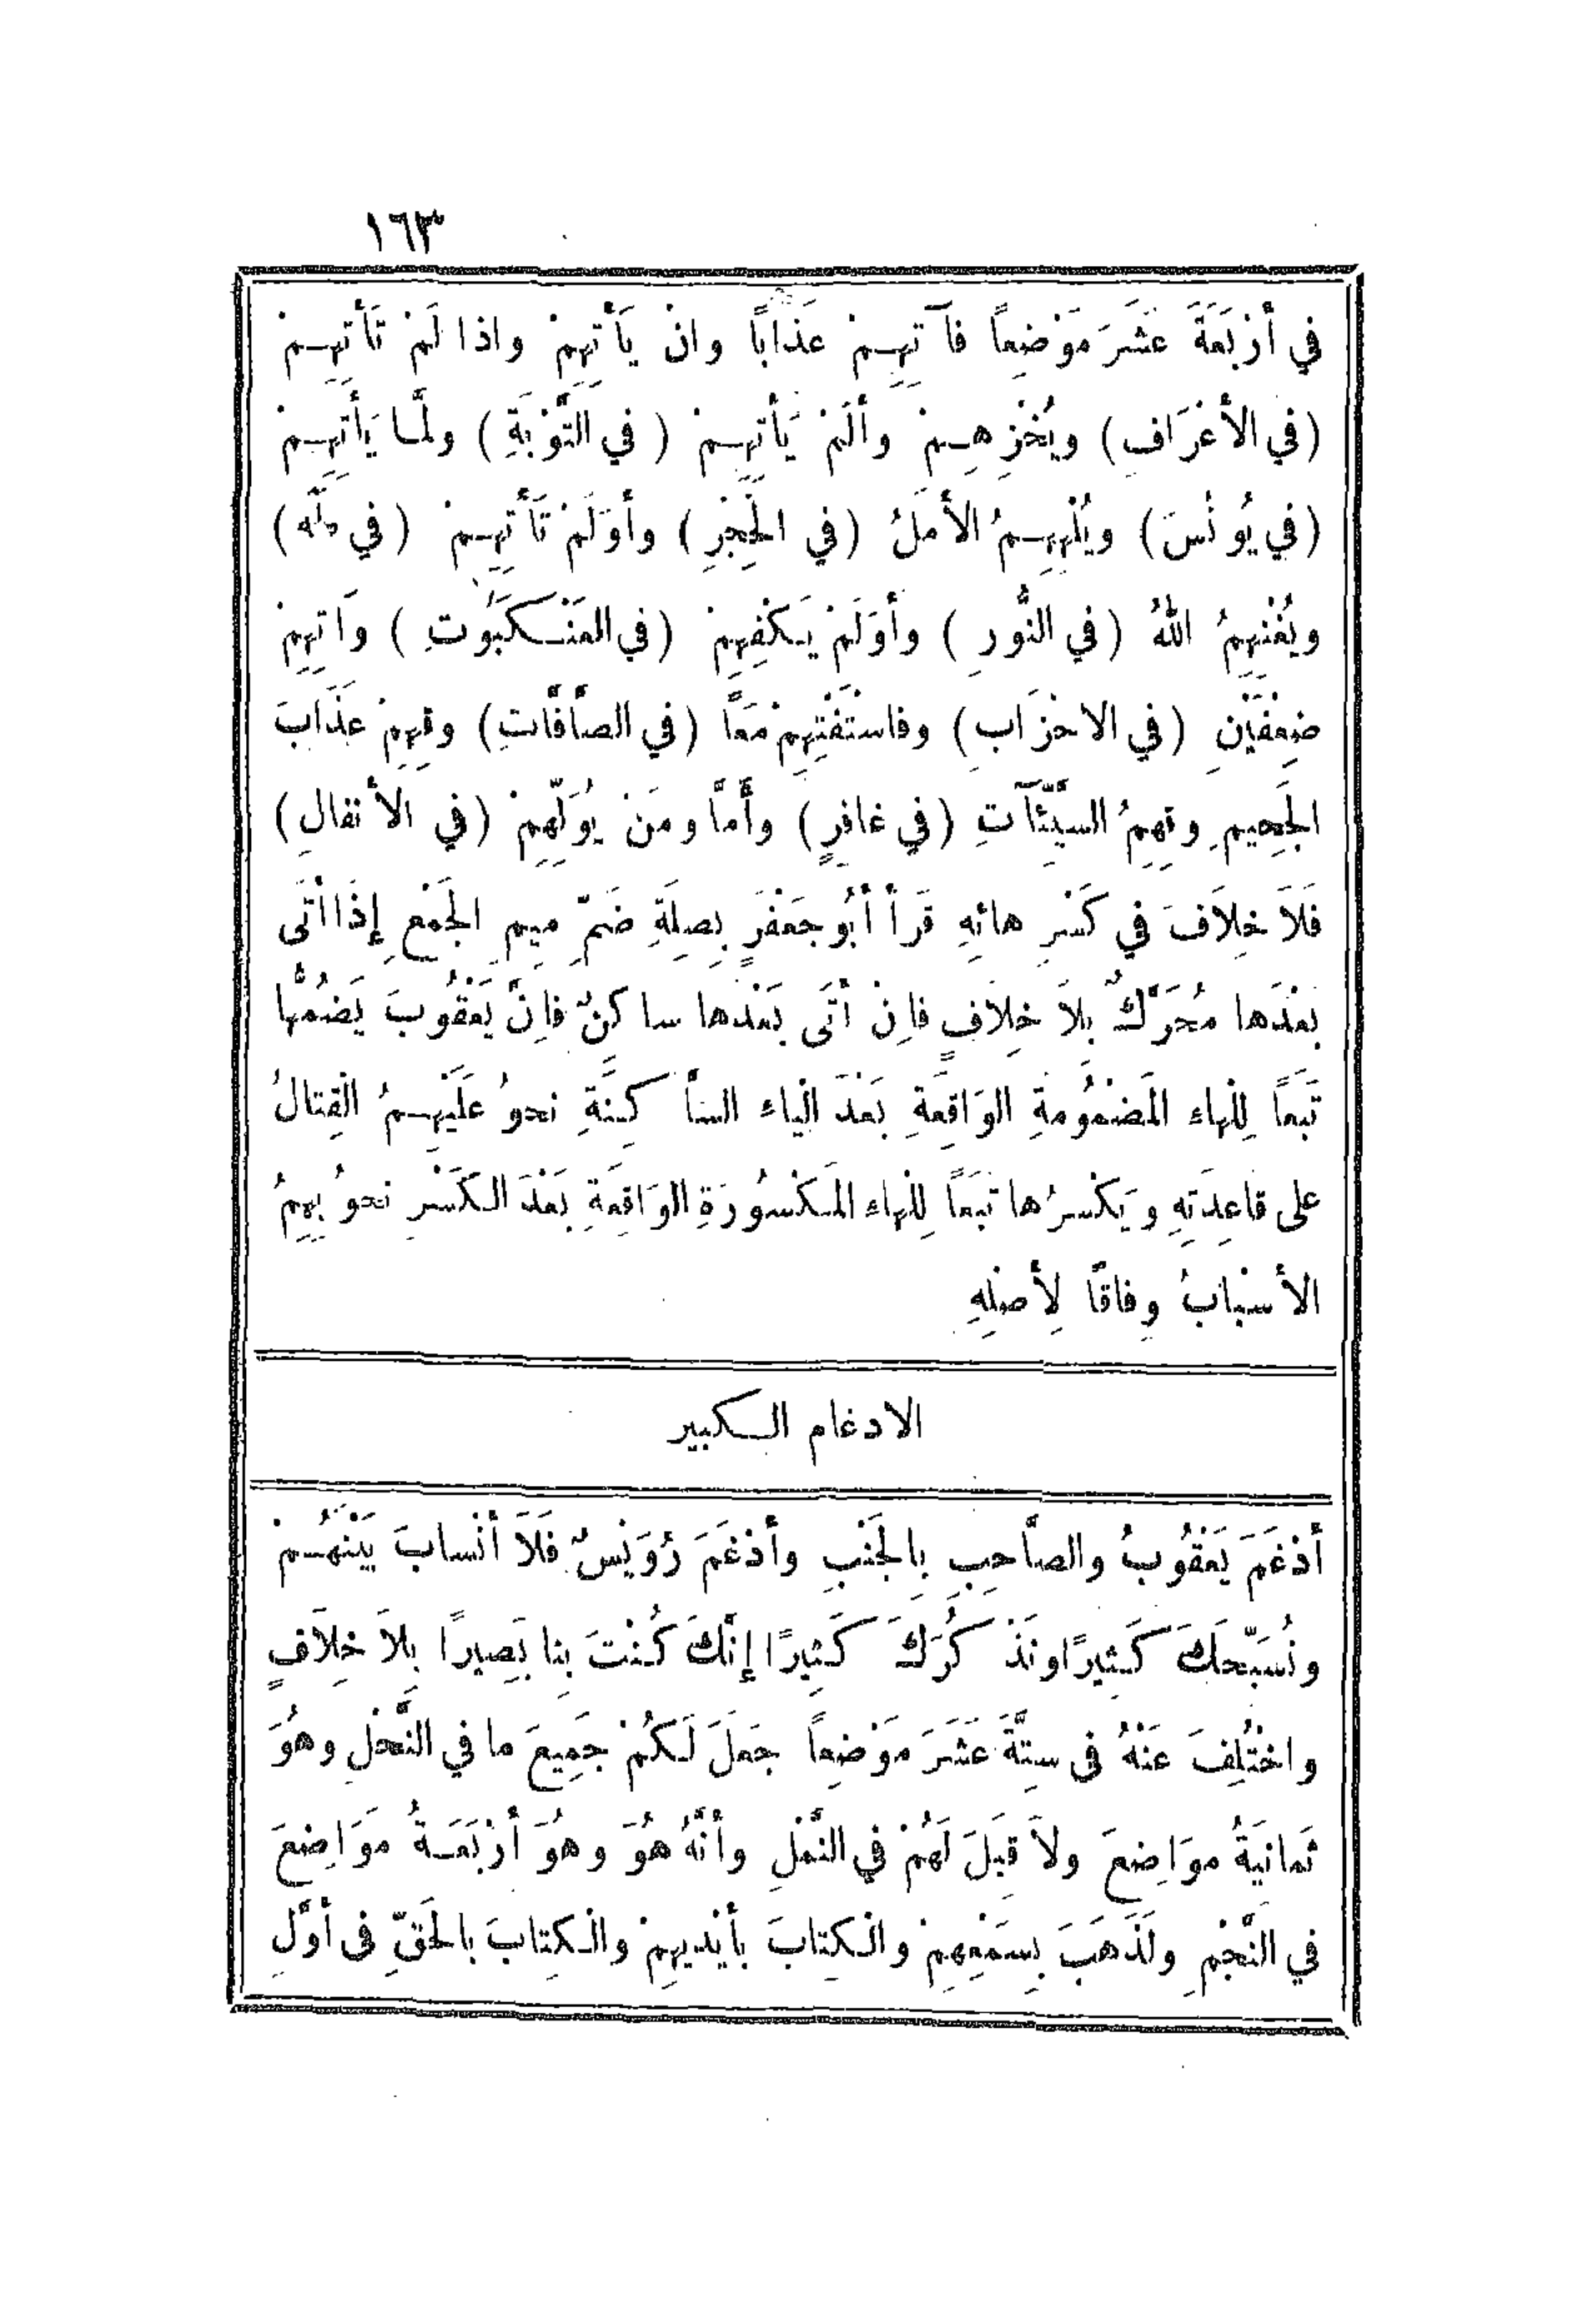 ١٦٣
في أرْبَعَةَ عَشَرَ مَوْضِعاً فَآتِهِمْ عَذَابًا وانْ يَأْتِهِمْ واذا لَمْ تَأْتِهِمْ
(في الأعْرَافِ) ويُخْزِهِمْ وألَمْ يَأْتِهِمْ (في التَّوْبَةِ) ولمَّا يَأْتِهِمْ
(في يُونُسَ) ويُلْهِهِمُ الأمَلُ (في الحِجْرِ) وأوَلَمْ تَأْتِهِمْ (في طَه)
ويُغْنِهِمُ اللهُ (في النُّورِ) وأوَلَمْ يَكْفِهِمْ (في العَنْكَبُوتِ) وآتِهِمْ
ضِعْفَيْنِ (في الاحْزَابِ) وفاسْتَفْتِهِمْ مَعًا (في الصَّافَّاتِ) وقِهِمْ عَذَابَ
الجَحِيمِ وقِهِمُ السَّيِّئَآتِ (في غافِرٍ) وأَمَّا ومَنْ يُوَلِّهِمْ (في الأنفالِ)
فَلاَ خِلاَفَ في كَسْرِ هائهِ قَرَأ أبُو جَعْفَرٍ بِصِلَةِ ضَمِّ مِيمِ الجَمْعِ إِذَا أتَى
بَعْدَها مُحَرَّكٌ بِلاَ خِلاَفٍ فاِنْ أتَى بَعْدَها ساكنٌ فاِنَّ يَعْقُوبَ يَضُمُّها
تَبَعاً لِلْهاءِ المَضْمُومةِ الوَاقِعَةِ بَعْدَ الْياءِ السَّاكِنَةِ نحوُ عَلَيْهِمُ الْقِتالُ
على قاعِدَتِهِ ويَكْسِرُها تَبَعَاً لِلْهاءِ المَكْسُورَةِ الوَاقِعَةِ بَعْدَ الكَسْرِ نحوُ بِهِمُ
الأسْبابُ وِفاقًا لِأصْلِهِ
الادغام الكبير
أدْغَمَ يَعْقُوبُ والصَّاحِبِ بِالجَنْبِ وأدْغَمَ رُوَيْسٌ فَلاَ أنْسابَ بَيْنَهُمْ
ونُسَبِّحَكَ كَثِيرًا ونَذْكُرَكَ كَثِيرًا إنَّكَ كُنْتَ بِنا بَصِيرًا بِلاَ خِلاَفٍ
واخْتُلِفَ عَنْهُ فى سِتَّةَ عَشَرَ مَوْضِعاً جَعَلَ لَكُمْ جَمِيعَ ما في النَّحْلِ وهُوَ
ثَمانِيَةُ موَاضِعَ ولاَ قِبَلَ لَهُمْ في النَّمْلِ وأنَّهُ هُوَ وهُوَ أرْبَعَةُ مَوَاضِعَ
في النَّجْمِ ولَذَهَبَ بِسَمْعِهِمْ والْكِتابَ بأيْدِيهِمْ والْكِتابَ بالحَقِّ فى أوَّلِ